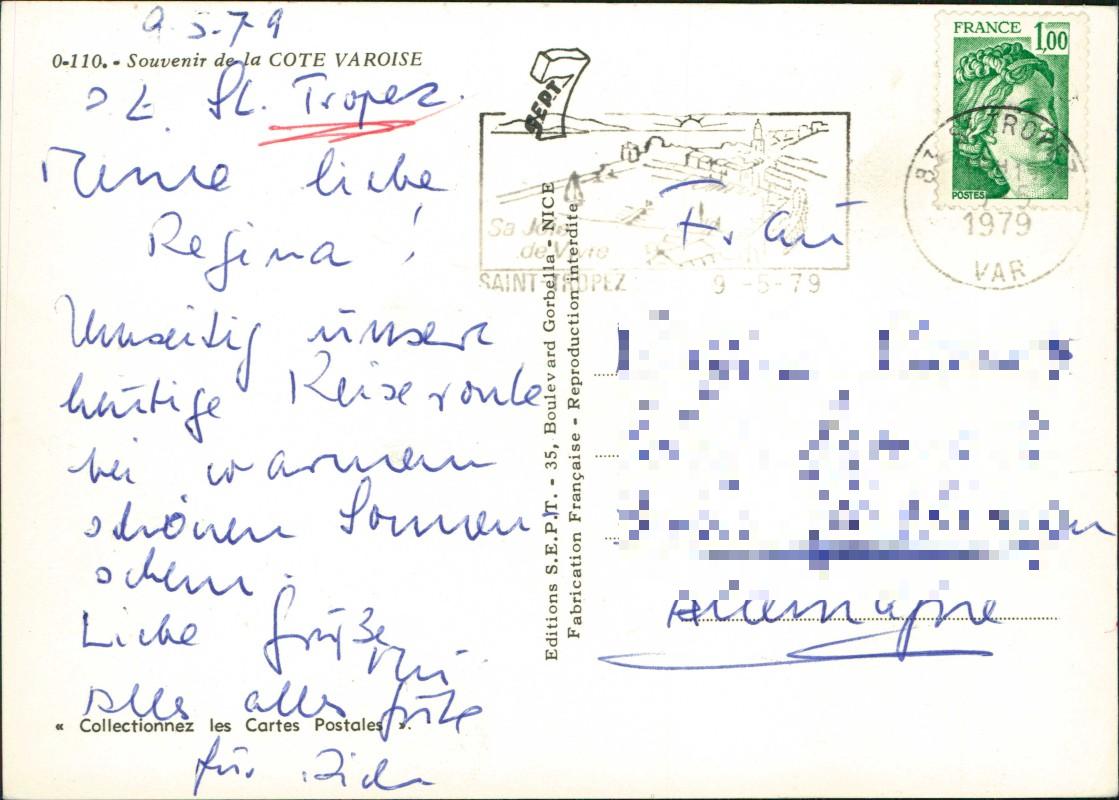 9.5.79
0-110. - Souvenir de la COTE VAROISE
z. Z. St. Tropez.
Meine liebe
Regina !
Umseitig unsere
heutige Reiseroute
bei warmen
schönen Sonnen
schein.
Liebe Grüße
Alles alles gute
für Dich
« Collectionnez les Cartes Postales ».
Editions S.E.P.T. - 35, Boulevard Gorbella - NICE
Fabrication Française - Reproduction interdite
SEPT
7
Sa Joie
de Vivre
SAINT-TROPEZ 9 -5-79
FRANCE 1,00
POSTES
83 ST TROPEZ
1979
VAR
Frau
Allemagne